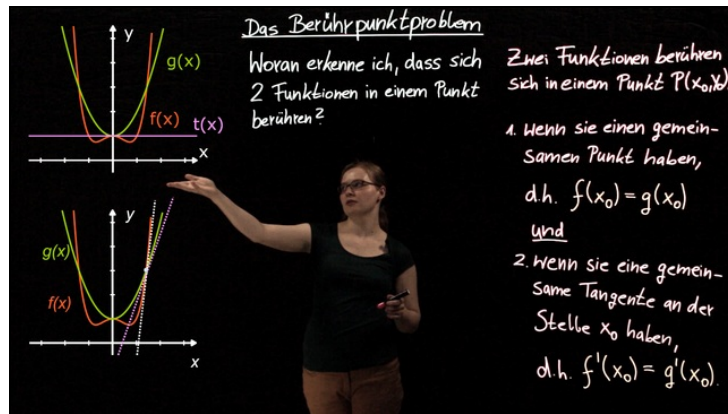 Das Berührpunktproblem
Woran erkenne ich, dass sich
2 Funktionen in einem Punkt
berühren?
y
g(x)
f(x)
t(x)
x
y
g(x)
f(x)
x
Zwei Funktionen berühren
sich in einem Punkt P(x₀,y₀)
1. wenn sie einen gemein-
samen Punkt haben,
d.h. f(x₀) = g(x₀)
und
2. wenn sie eine gemein-
same Tangente an der
Stelle x₀ haben,
d.h. f'(x₀) = g'(x₀).